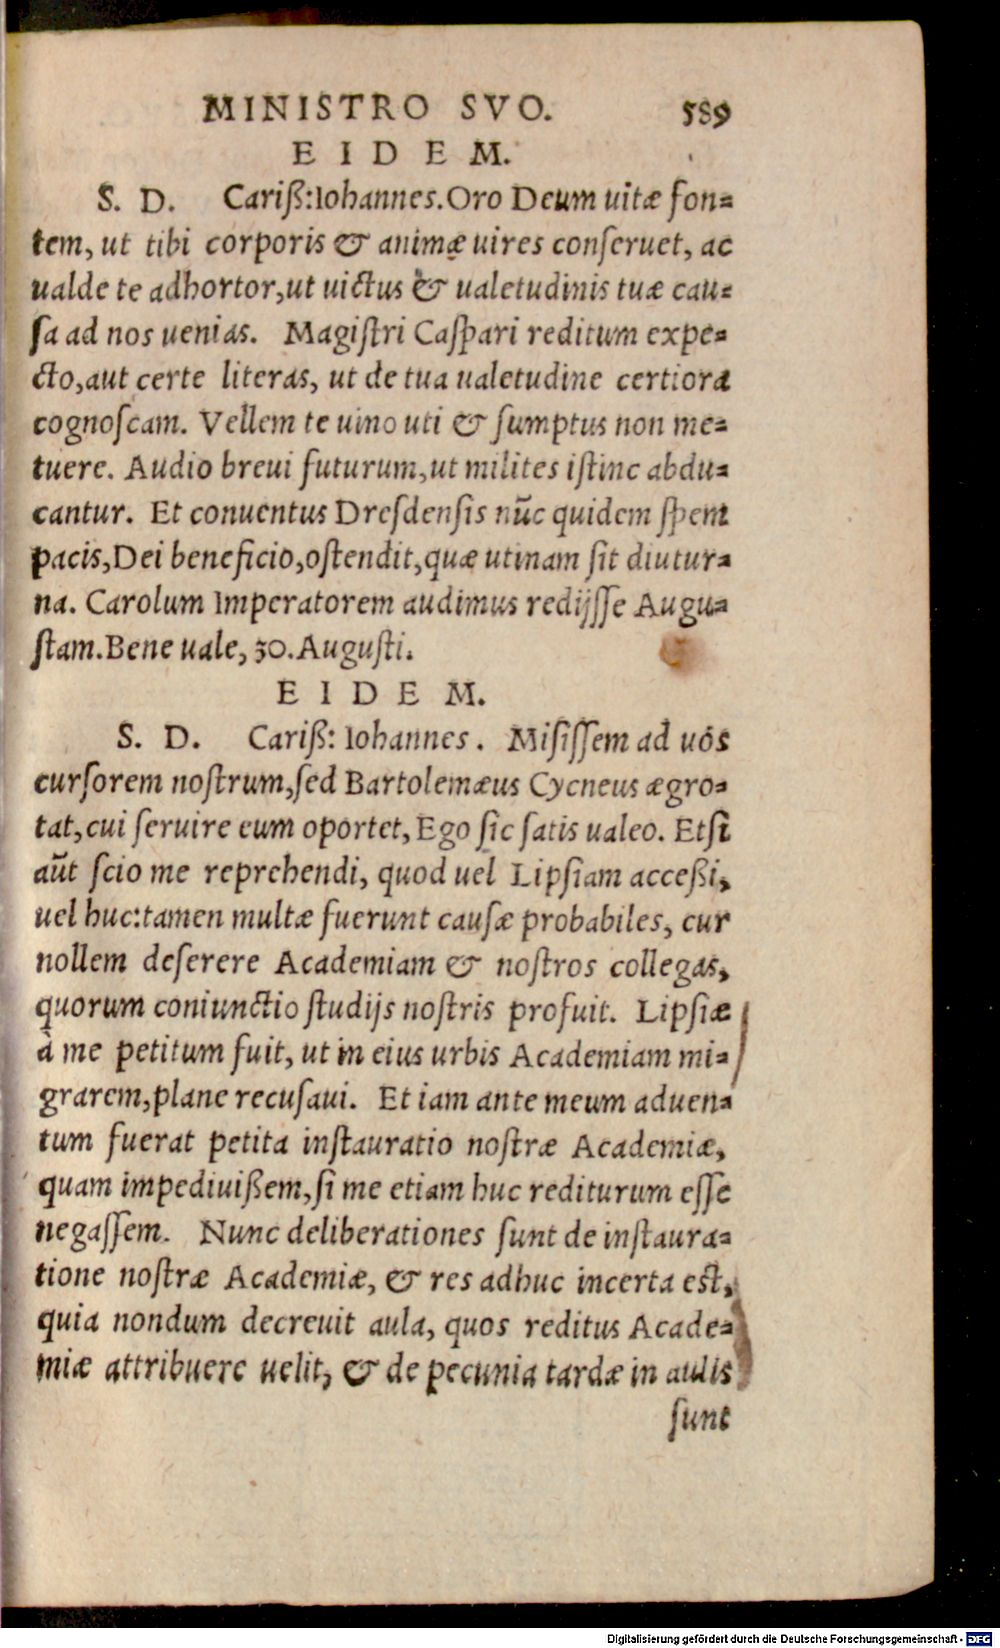 MINISTRO SVO. 589
EIDEM.
S. D. Cariß: Iohannes. Oro Deum uitæ fon=
tem, ut tibi corporis & animæ uires conſeruet, ac
ualde te adhortor, ut uictus & ualetudinis tuæ cau=
ſa ad nos uenias. Magiſtri Caſpari reditum expe=
cto, aut certe literas, ut de tua ualetudine certiora
cognoſcam. Vellem te uino uti & ſumptus non me=
tuere. Audio breui futurum, ut milites iſtinc abdu=
cantur. Et conuentus Dresdenſis nũc quidem ſpem
pacis, Dei beneficio, oſtendit, quæ utinam ſit diutur=
na. Carolum Imperatorem audimus redijſſe Augu=
ſtam. Bene uale, 30. Auguſti.
EIDEM.
S. D. Cariß: Iohannes. Miſiſſem ad uos
curſorem noſtrum, ſed Bartolemæus Cycneus ægro=
tat, cui ſeruire eum oportet, Ego ſic ſatis ualeo. Etſi
aũt ſcio me reprehendi, quod uel Lipſiam acceßi,
uel huc: tamen multæ fuerunt cauſæ probabiles, cur
nollem deſerere Academiam & noſtros collegas,
quorum coniunctio ſtudijs noſtris profuit. Lipſiæ
à me petitum fuit, ut in eius urbis Academiam mi=
grarem, plane recuſaui. Et iam ante meum aduen=
tum fuerat petita inſtauratio noſtræ Academiæ,
quam impediuißem, ſi me etiam huc rediturum eſſe
negaſſem. Nunc deliberationes ſunt de inſtaura=
tione noſtræ Academiæ, & res adhuc incerta eſt,
quia nondum decreuit aula, quos reditus Acade=
miæ attribuere uelit, & de pecunia tardæ in aulis
ſunt
Digitalisierung gefördert durch die Deutsche Forschungsgemeinschaft - DFG